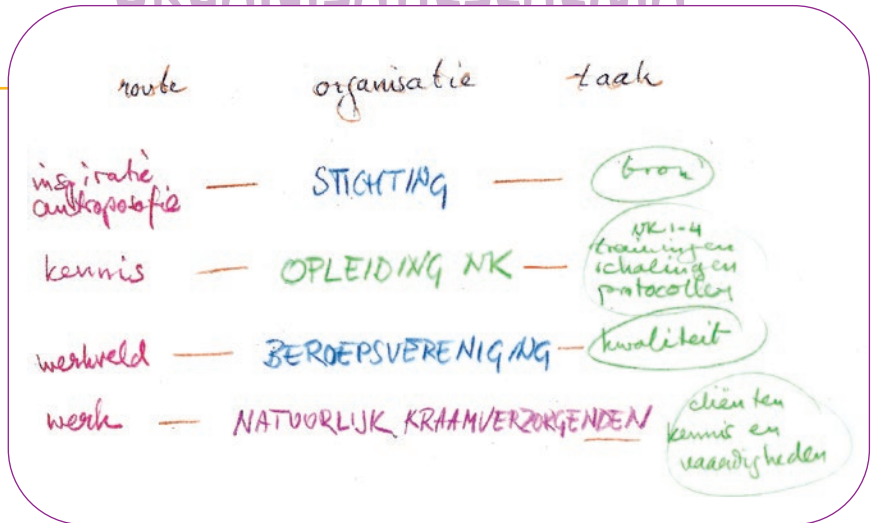 route organisatie taak
inspiratie
antroposofie — STICHTING — bron
kennis — OPLEIDING NK — NK 1-4
trainingen
scholingen
protocollen
werkveld — BEROEPSVERENIGING — kwaliteit
werk — NATUURLIJK KRAAMVERZORGENDEN
cliënten
kennis en
vaardigheden